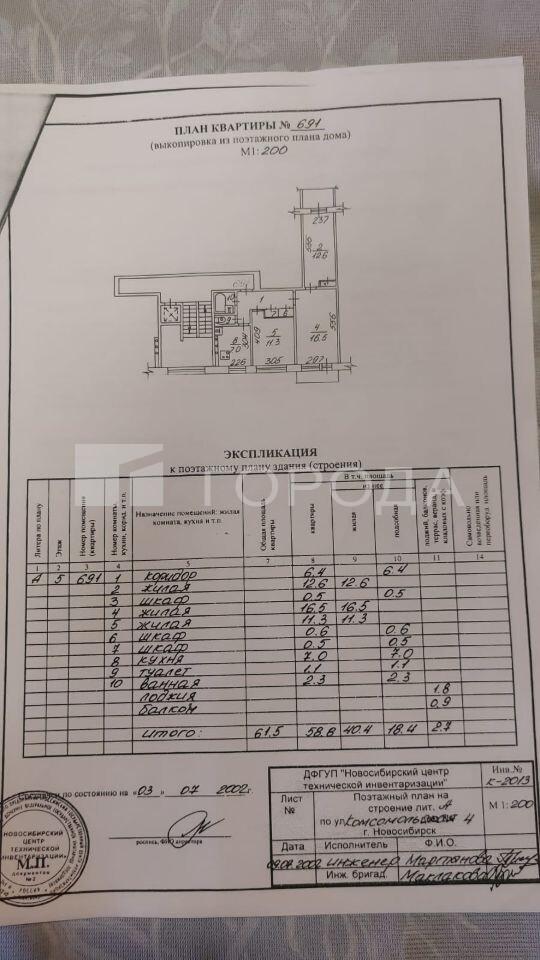 ПЛАН КВАРТИРЫ № 691
(выкопировка из поэтажного плана дома)
М1:200
237
2
12.6
10
1
9
7 6
8
7.0
304
409
5
11.3
4
16.5
226
305
297
ЭКСПЛИКАЦИЯ
к поэтажному плану здания (строения)
ГОРОДА
Литера по плану
Этаж
Номер помещения (квартиры)
Номер комнаты, кухни, корид. и т.п.
Назначение помещений: жилая комната, кухня и т.п.
Общая площадь квартиры
В т.ч. площадь
квартиры
жилая
подсобная
лоджий, балконов,
Самовольно
1 2 3 4 5 7 8 9 10 11 14
А 5 691 1 коридор 6.4 6.4
2 жилая 12.6 12.6
3 шкаф 0.5 0.5
4 жилая 16.5 16.5
5 жилая 11.3 11.3
6 шкаф 0.6 0.6
7 шкаф 0.5 0.5
8 кухня 7.0 7.0
9 туалет 1.1 1.1
10 ванная 2.3 2.3
лоджия 1.8
балкон 0.9
итого: 61.5 58.8 40.4 18.4 2.7
по состоянию на «03» 07 2002г.
роспись, ФИО директора
НОВОСИБИРСКИЙ
ЦЕНТР
ТЕХНИЧЕСКОЙ
ИНВЕНТАРИЗАЦИИ
М.П.
документов
№2
ДФГУП "Новосибирский центр
технической инвентаризации"
Инв.№
К-2013
Лист
№
Поэтажный план на
строение лит. А
по ул. 4
г. Новосибирск
М 1:200
Дата Исполнитель Ф.И.О.
2002 инженер
Инж. бригад. Маклакова